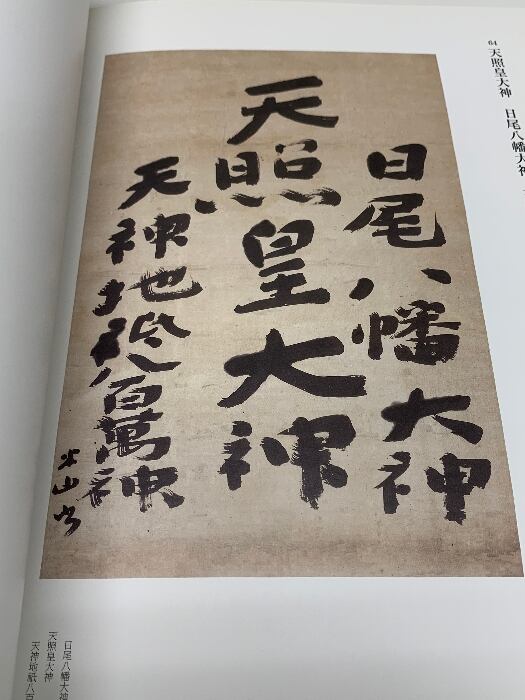 64
天照皇大神　日尾八幡大神
日尾八幡大神
天照皇大神
天神地祇八百萬神
米山書
日尾八幡大神
天照皇大神
天神地祇八百